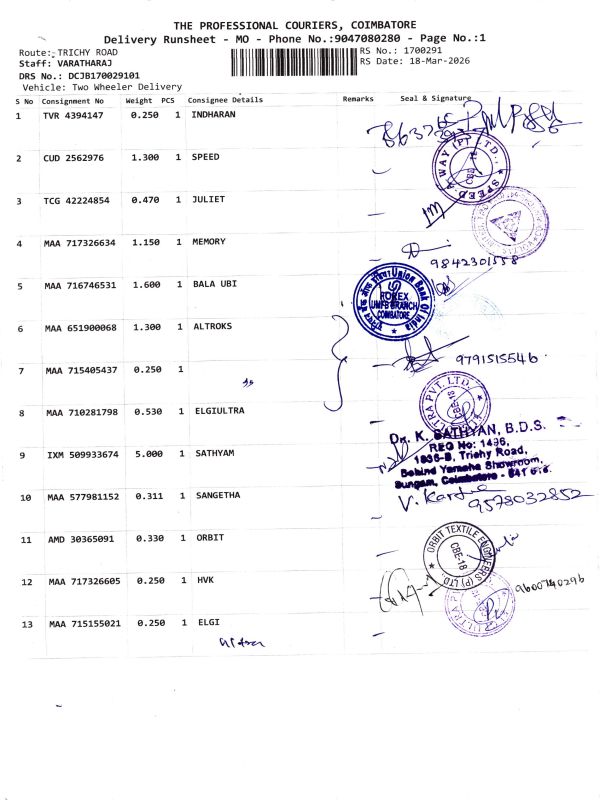 THE PROFESSIONAL COURIERS, COIMBATORE
Delivery Runsheet - MO - Phone No.:9047080280 - Page No.:1
Route: TRICHY ROAD
RS No.: 1700291
Staff: VARATHARAJ
RS Date: 18-Mar-2026
DRS No.: DCJB170029101
Vehicle: Two Wheeler Delivery
S No Consignment No Weight PCS Consignee Details Remarks Seal & Signature
1 TVR 4394147 0.250 1 INDHARAN
2 CUD 2562976 1.300 1 SPEED
SPEED A WAY (PT LTD.,
CBE-18
3 TCG 42224854 0.470 1 JULIET
4 MAA 717326634 1.150 1 MEMORY
9842301558
5 MAA 716746531 1.600 1 BALA UBI
Union Bank Of India
ROREX
UMFB BRANCH
COIMBATORE
6 MAA 651900068 1.300 1 ALTROKS
9791515546
7 MAA 715405437 0.250 1
8 MAA 710281798 0.530 1 ELGIULTRA
ULTRA PVT. LTD.
CBE-18
9 IXM 509933674 5.000 1 SATHYAM
Dr. K. SATHYAN, B.D.S.
REG No: 1496,
1836-B, Trichy Road,
Behind Yamaha Showroom,
Sungam, Coimbatore - 641 018.
10 MAA 577981152 0.311 1 SANGETHA
9578032852
11 AMD 30365091 0.330 1 ORBIT
ORBIT TEXTILE ENGINEERS (P) LTD.
CBE-18
12 MAA 717326605 0.250 1 HVK
9600740296
13 MAA 715155021 0.250 1 ELGI
ULTRA